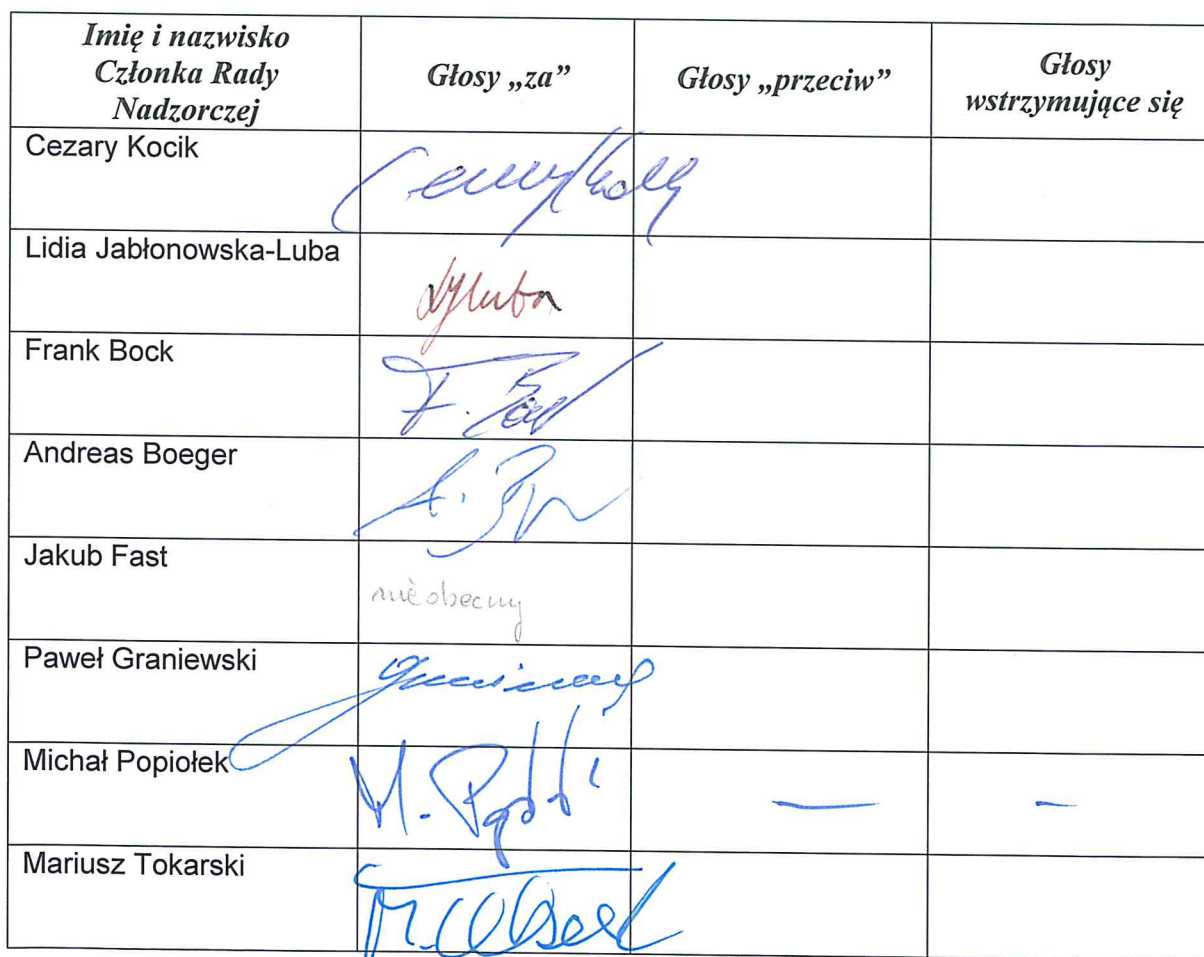 Imię i nazwisko
Członka Rady
Nadzorczej
Głosy „za”
Głosy „przeciw”
Głosy
wstrzymujące się
Cezary Kocik
Lidia Jabłonowska-Luba
Frank Bock
F. Bock
Andreas Boeger
Jakub Fast
nieobecny
Paweł Graniewski
Michał Popiołek
— -
Mariusz Tokarski